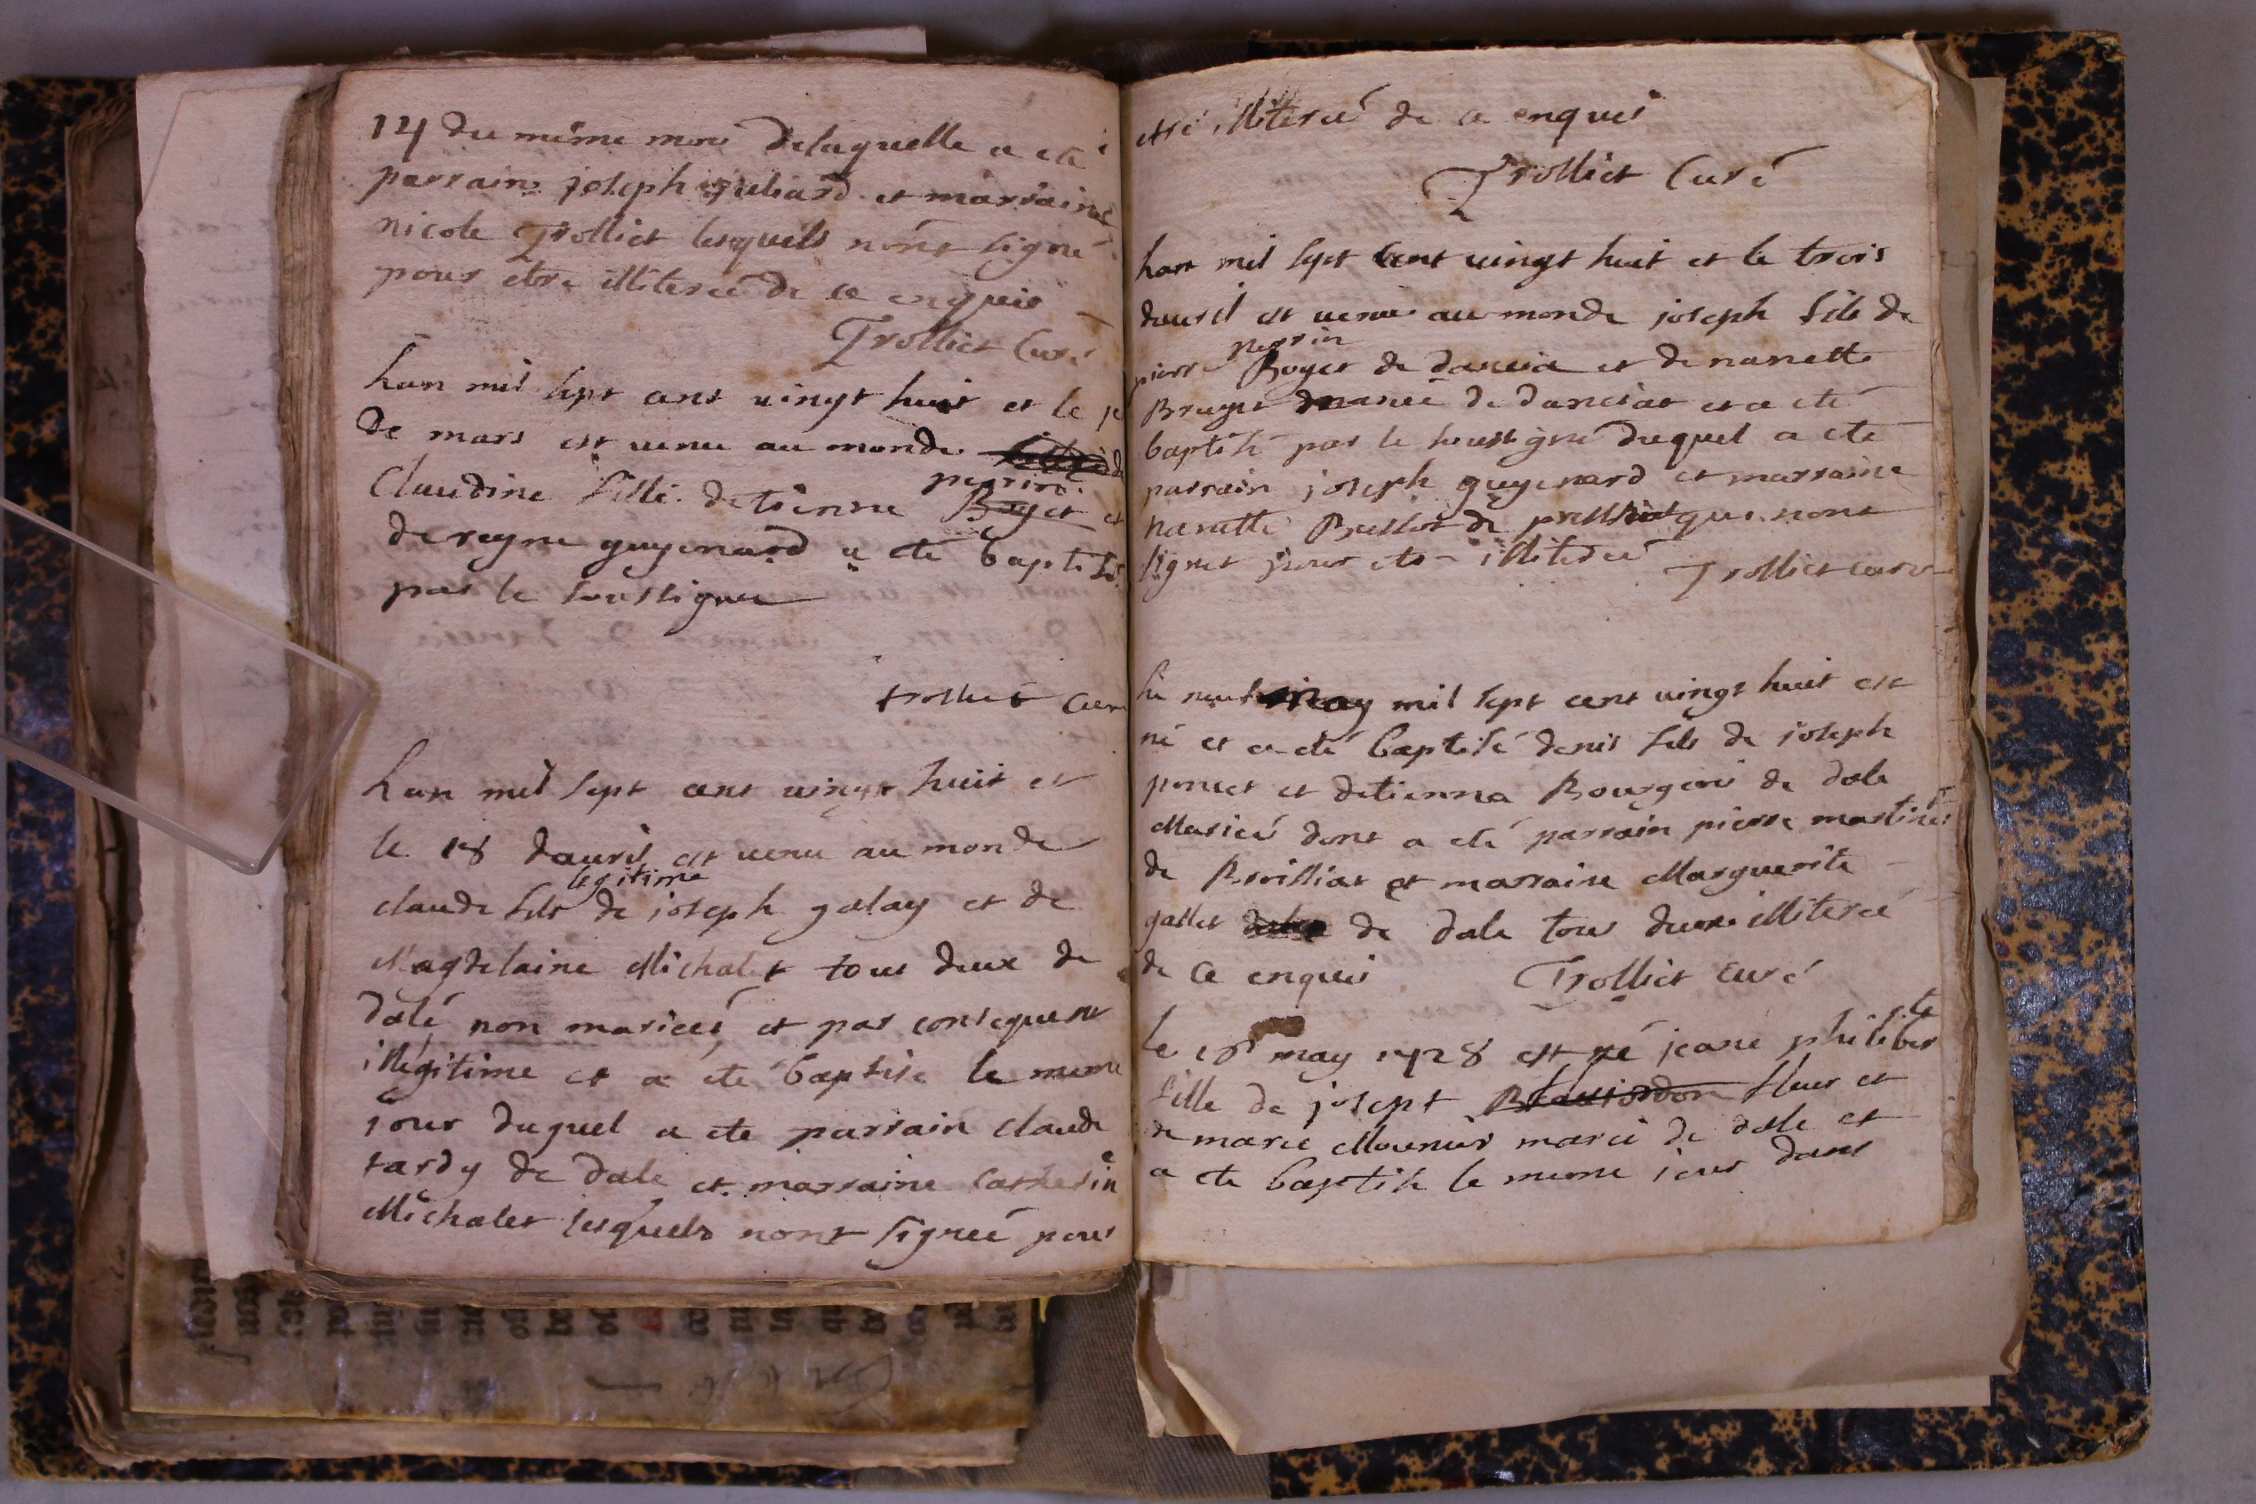 14 du même mois delaquelle a eté
parrain joseph guliard et marraine
nicole Trolliet lesquels nont signé
pour etre illiteré de ce enquis
Trolliet Curé
Lan mil sept cent vingt huit et le
de mars est venu au monde
perrin
Claudine fille detienne Boyet et
de reyne guyenard a eté baptisé
par le soussigné
trolliet Curé
Lan mil sept cent vingt huit et
le 18 davril est venu au monde
legitime
claude fils de joseph golay et de
Magdelaine Michalet tous deux de
dalé non mariees et par consequent
illegitime et a eté baptisé le meme
jour duquel a ete parrain claude
tardy de dale et marraine Catherine
Michalet lesquels nont signeé pour
etre illiteré de ce enquis
Trolliet Curé
Lan mil sept cent vingt huit et le trois
davril est venu au monde joseph fils de
perrin
pierre Boyet de dancia et de nanette
Bruyet mariée de danciat et a eté
baptisé par le soussigné duquel a eté
parrain joseph guyenard et marraine
nanette Bullet de pressiat qui nont
signet pour etre illiteré Trolliet curé
Le neuf may mil sept cent vingt huit est
né et a eté baptisé denis fils de joseph
poncet et detienna Bourgeois de dale
Marieé dont a eté parrain pierre martinet
de Broilliat et marraine Marguerite
gallet de dale tous deux illiteré
de ce enquis Trolliet curé
Le 18 may 1728 est né jeane philiberte
fille de josept fleur et
de marie Mounier marié de dale et
a ete baptisé le meme jour dans